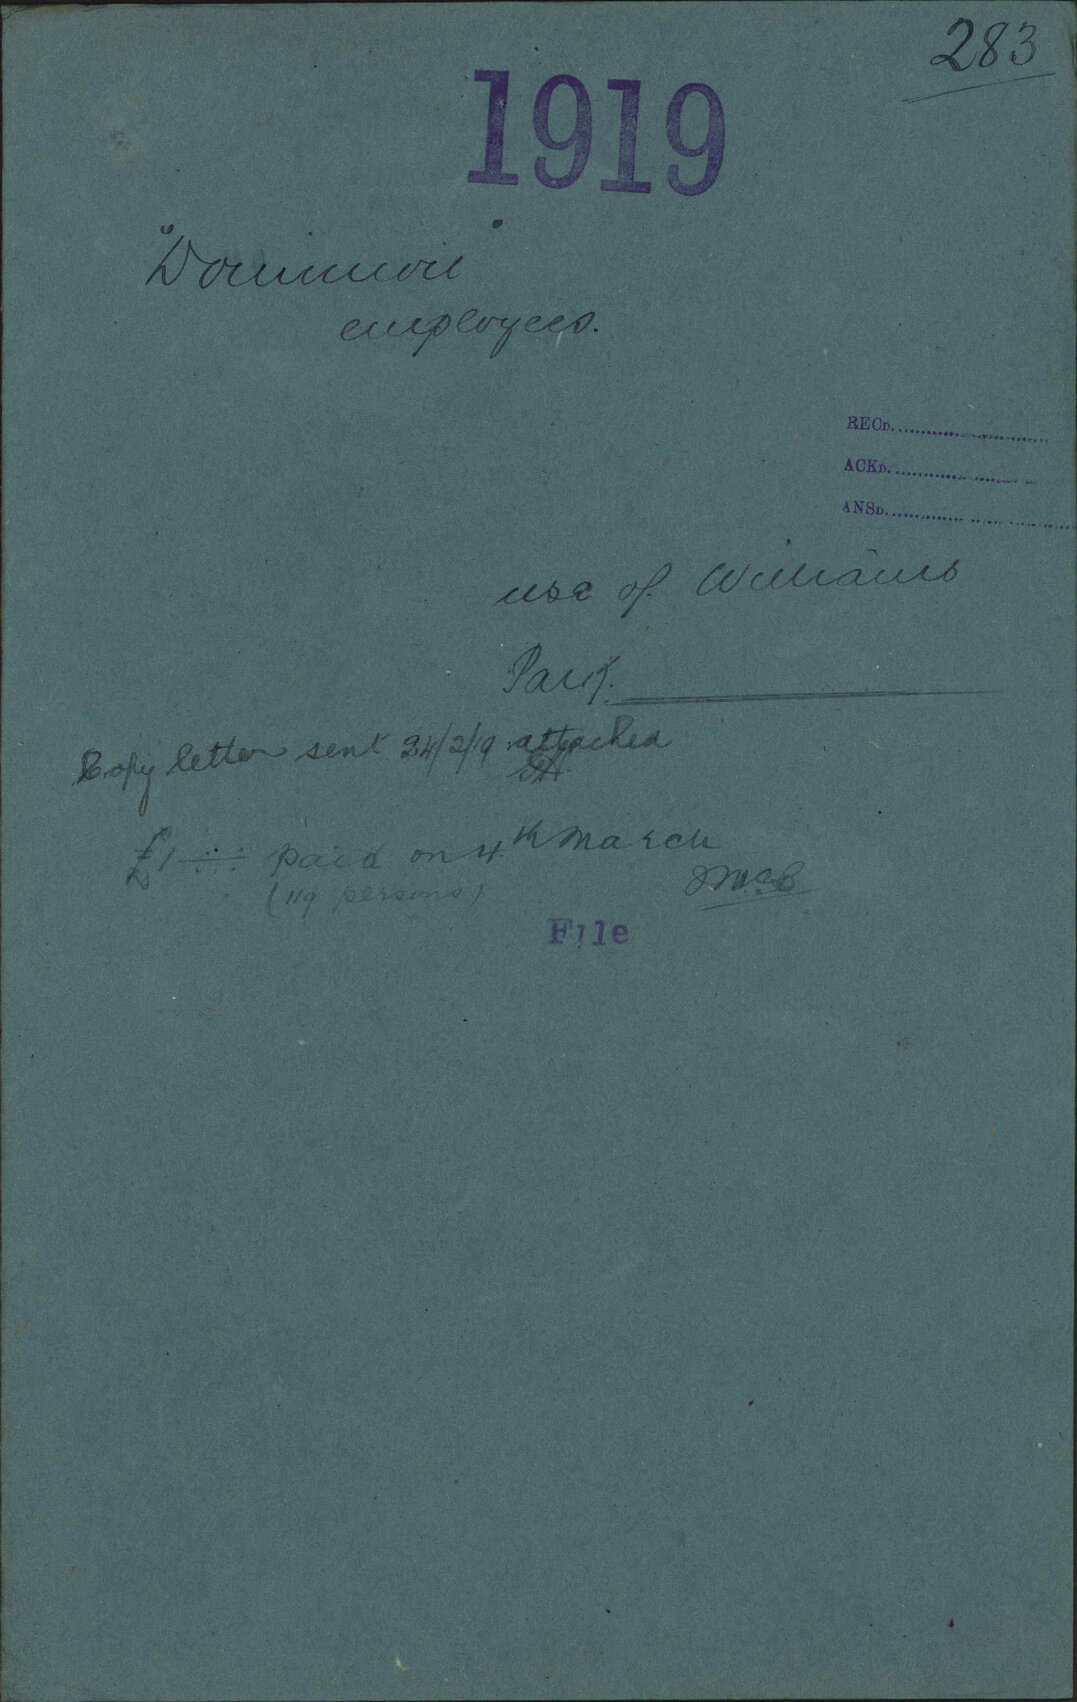 283
1919
"Dominion"
employees.
RECD.
ACKD.
ANSD.
use of Williams
Park.
Copy letter sent 24/2/19 attached
£1 paid on 4th March
(119 persons)
JMcB
File